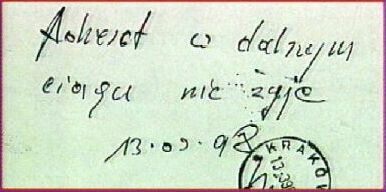 Adresat w dalszym
ciągu nie żyje
13.09.98
KRAKÓW